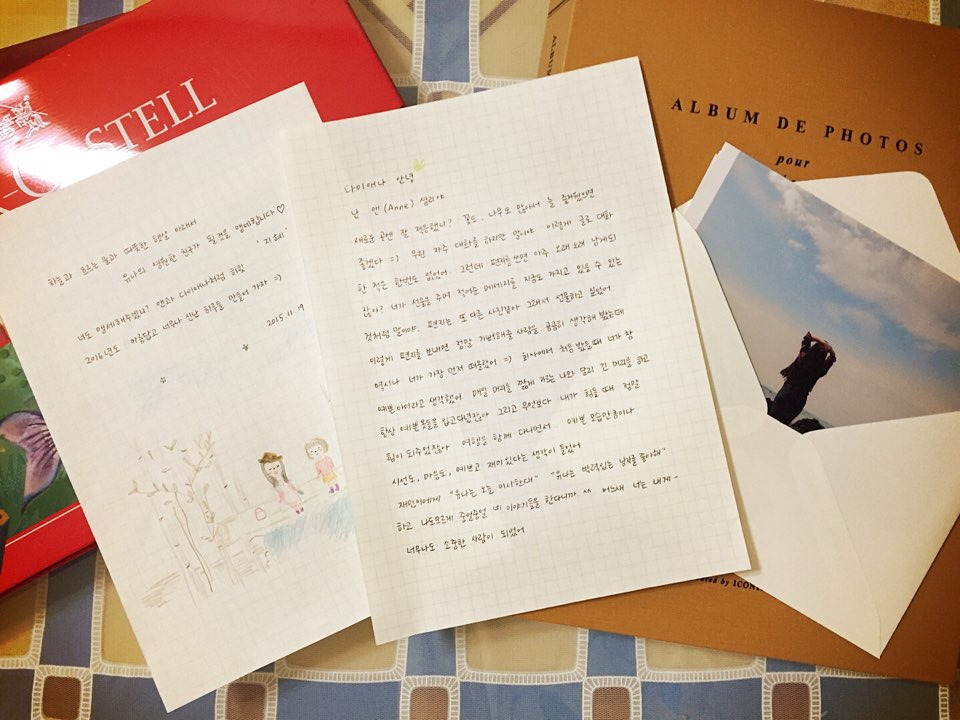 STELL
ALBUM DE PHOTOS
pour
다이애나 안녕
난 앤(Anne) 셜리야
새로운 곳엔 잘 적응했니? 꽃도, 나무도 많아서 늘 즐거웠으면
좋겠다 =) 우린 자주 대화를 하지만 말이야 이렇게 글로 대화
한 적은 한번도 없었어. 그런데 편지를 쓰면 아주 오래오래 남게되
잖아? 네가 선물을 주며 적어준 메세지를 지금도 가지고 있을 수 있는
것처럼 말이야. 편지는 또 다른 사진같아 그래서 선물하고 싶었어.
이렇게 편지를 보내면 정말 기뻐해줄 사람을 곰곰히 생각해 봤는데
역시나 네가 가장 먼저 떠올랐어 =) 회사에서 처음 봤을때 네가 참
예쁜 아이라고 생각했어 매일 머리를 짧게 자르는 나와 달리 긴 머리를 하고
항상 예쁜 옷들을 입고다녔잖아 그리고 무엇보다 내가 힘들 때 정말
힘이 되주었잖아 여행을 함께 다니면서.. 예쁜 모습만큼이나
시선도, 마음도, 예쁘고 재미있다는 생각이 들었어
재민이에게 "유나는 오늘 미사한대" "유나는 박력있는 남자를 좋아해"
하고 나도모르게 중얼중얼 네 이야기들을 한다니까 ^^ 어느새 너는 내게~
너무나도 소중한 사람이 되었어
하늘과 흐르는 물과 따뜻한 햇살 아래서
유나의 영원한 친구가 될것을 맹세합니다♡
'지혜'
너도 맹세해주겠니? 앤과 다이애나처럼 히힛
2016년도 아름답고 너무나 신난 하루들 만들어 가자 =)
2015.11.19
by ICON